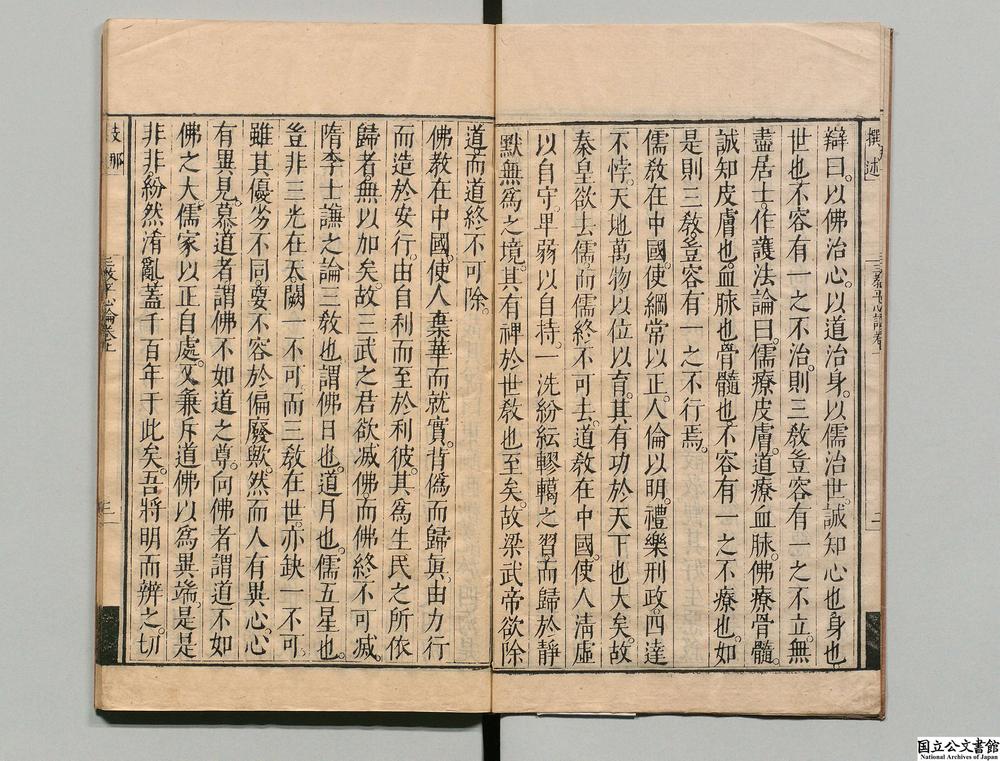 撰述
三教平心論卷上
二
辯曰。以佛治心。以道治身。以儒治世。誠知心也身也
世也不容有一之不治。則三敎豈容有一之不立。無
盡居士。作護法論曰。儒療皮膚。道療血脉。佛療骨髓。
誠知皮膚也。血脉也。骨髓也。不容有一之不療也。如
是則三敎。豈容有一之不行焉。
儒敎在中國。使綱常以正。人倫以明。禮樂刑政。四達
不悖。天地萬物。以位以育。其有功於天下也大矣。故
秦皇欲去儒。而儒終不可去。道敎在中國。使人清虛
以自守。卑弱以自持。一洗紛紜轇轕之習。而歸於靜
默無爲之境。其有裨於世敎也至矣。故梁武帝欲除
道。而道終不可除。
佛敎在中國。使人棄華而就實。背僞而歸眞。由力行
而造於安行。由自利而至於利彼。其爲生民之所依
歸者。無以加矣。故三武之君欲滅佛。而佛終不可滅。
隋李士謙之論三敎也。謂佛日也。道月也。儒五星也。
豈非三光在天。闕一不可。而三敎在世。亦缺一不可。
雖其優劣不同。要不容於偏廢歟。然而人有異心。心
有異見。慕道者。謂佛不如道之尊。向佛者。謂道不如
佛之大。儒家以正自處。又兼斥道佛以爲異端。是是
非非。紛然淆亂。蓋千百年于此矣。吾將明而辨之。切
支那
三教平心論卷上
三
国立公文書館
National Archives of Japan